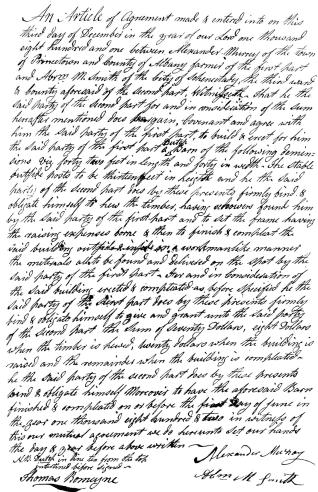 An Article of Agreement made & entered into on this
third day of December in the year of our Lord one thousand
eight hundred and one between Alexander Murray of the town
of Princetown and County of Albany farmer of the first part
and Abrm M. Smith of the City of Schenectady the third ward
& County aforesaid of the second part, Witnesseth that he the
said party of the second part for and in consideration of the sum
hereafter mentioned does bargain, covenant and agree with
him the said party of the first part, to build & erect for him
the said party of the first part a Dutch Barn of the following demen-
sions viz forty two feet in length and forty in width The
outside posts to be thirteen feet in length and he the said
party of the second part does by these presents firmly bind &
obligate himself to hew the timber, having found him
by the said party of the first part and to set the frame having
the raising expenses borne & then to finish & compleat the
said building outside & inside in a workmanlike manner
the metireals all to be found and delivered on the spot by the
said party of the first part and in consideration of
the said building erected & compleated as before specified he the
said party of the first part does by these presents firmly
bind & obligate himself to give and grant unto the said party
of the second part the Sum of Seventy Dollars, eight Dollars
when the timber is hewed, twenty dollars when the building is
raised and the remainder when the building is compleated
he the said party of the second part does by these presents
bind & obligate himself to have the aforesaid Barn
finished & compleated on or before the first day of June in
the year one thousand eight hundred & two in witness of
this our mutual agreement we do hereunto set our hands
the day & year before above written
N.B. Dutch in line ten from the top
interlined before signed
Alexander Murray
Thomas Romeyne
Abrm M Smith